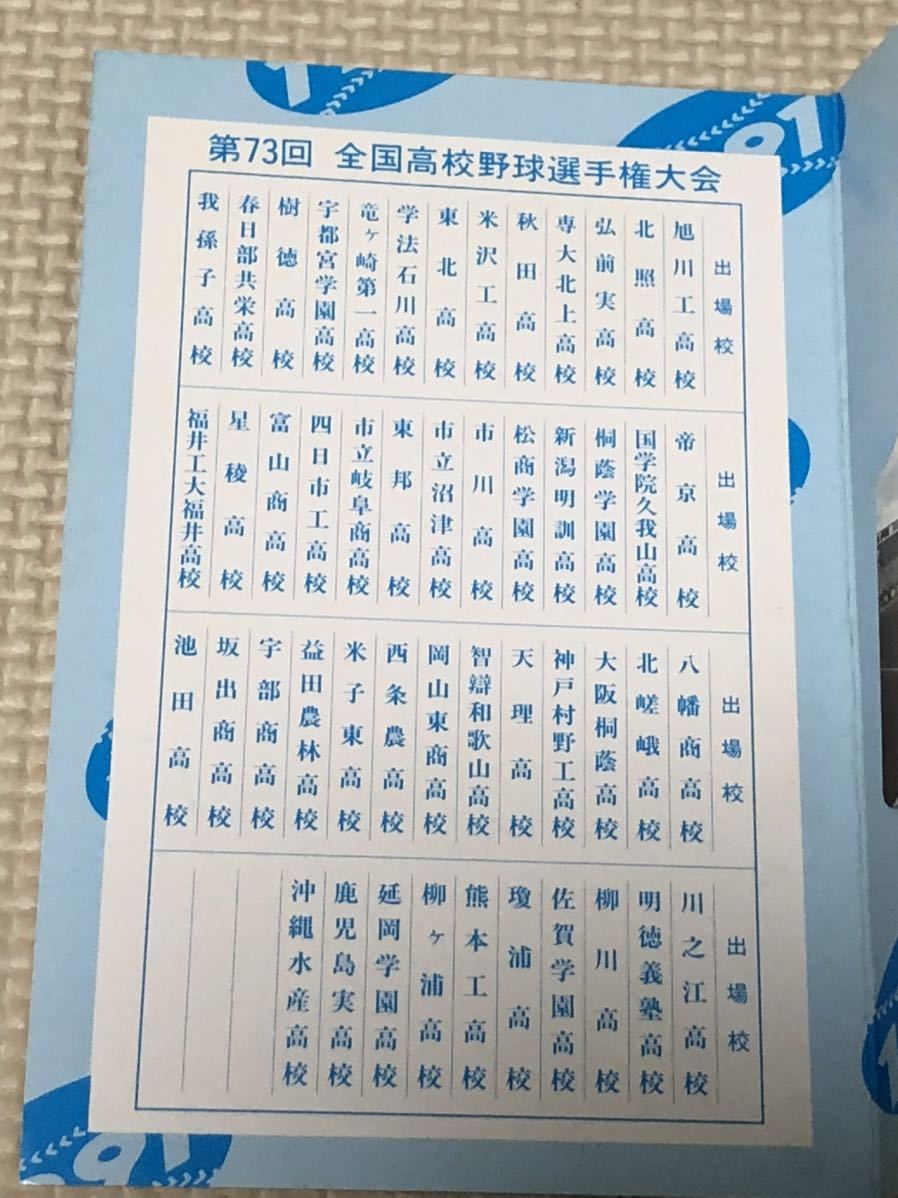 第73回 全国高校野球選手権大会
出場校
旭川工高校
北照高校
弘前実高校
専大北上高校
秋田高校
米沢工高校
東北高校
学法石川高校
竜ヶ崎第一高校
宇都宮学園高校
樹徳高校
春日部共栄高校
我孫子高校
出場校
帝京高校
国学院久我山高校
桐蔭学園高校
新潟明訓高校
松商学園高校
市川高校
市立沼津高校
東邦高校
市立岐阜商高校
四日市工高校
富山商高校
星稜高校
福井工大福井高校
出場校
八幡商高校
北嵯峨高校
大阪桐蔭高校
神戸村野工高校
天理高校
智辯和歌山高校
岡山東商高校
西条農高校
米子東高校
益田農林高校
宇部商高校
坂出商高校
池田高校
出場校
川之江高校
明徳義塾高校
柳川高校
佐賀学園高校
瓊浦高校
熊本工高校
柳ヶ浦高校
延岡学園高校
鹿児島実高校
沖縄水産高校
91
91